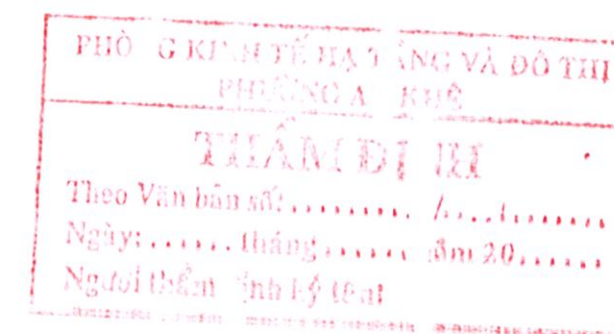 PHÒNG KINH TẾ HẠ TẦNG VÀ ĐÔ THỊ
PHƯỜNG AN KHÊ
THẨM ĐỊNH
Theo Văn bản số:......... /....1.......
Ngày:...... tháng...... năm 20......
Người thẩm định ký tên: